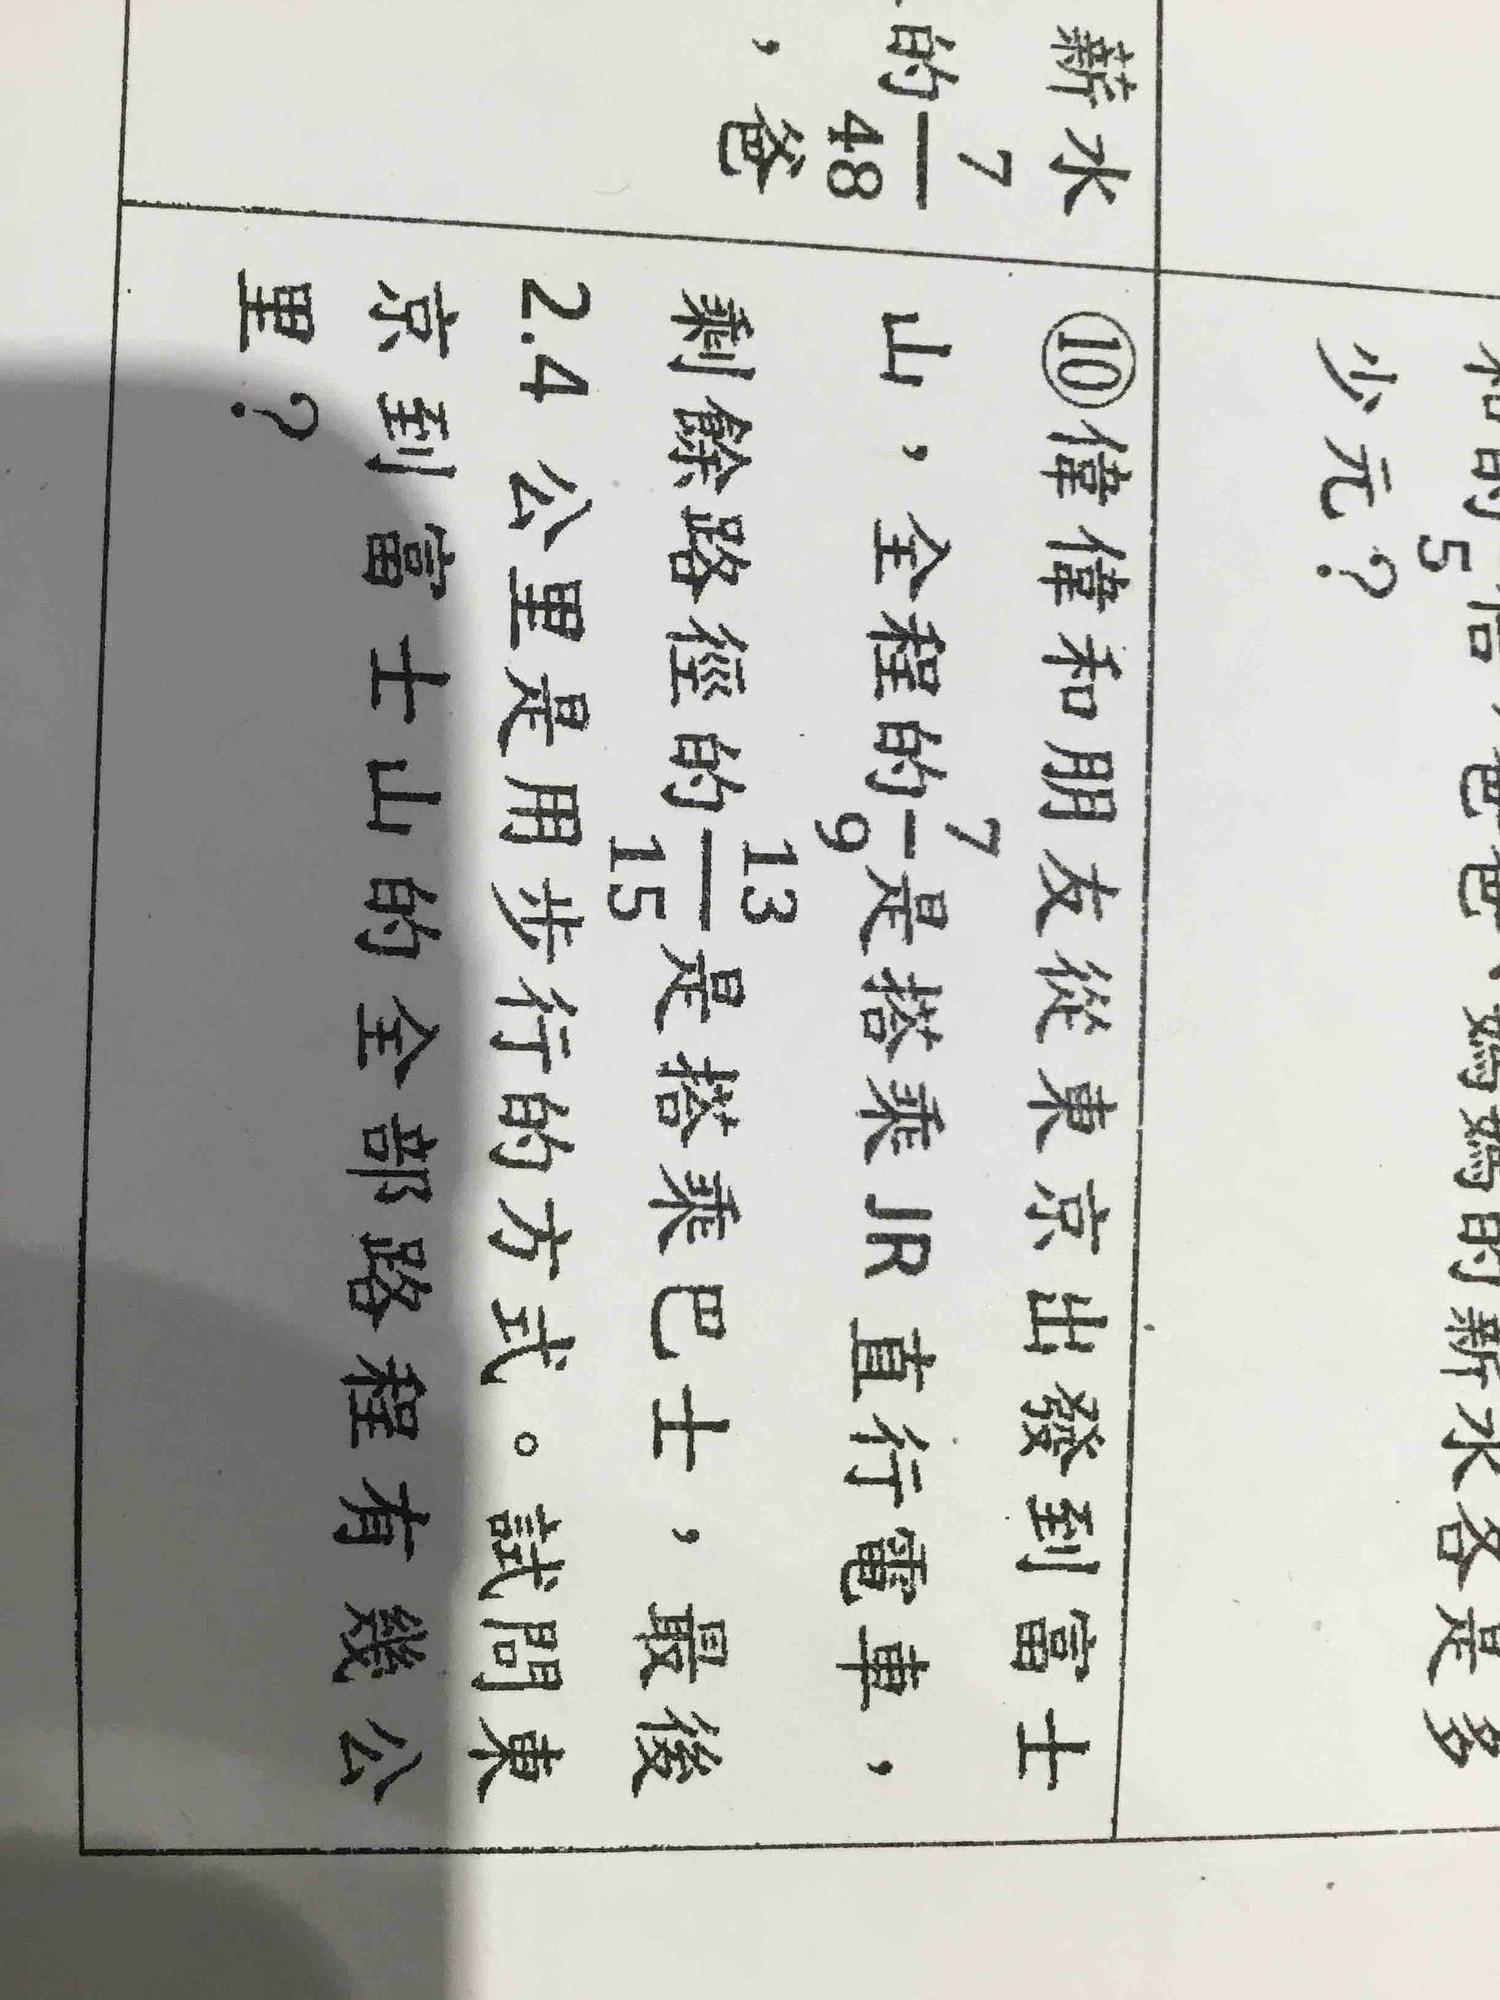 和的 5 倍，爸爸、媽媽的薪水各是多
少元？
薪水
的7/48
，爸
⑩偉偉和朋友從東京出發到富士
山，全程的7/9是搭乘 JR 直行電車，
剩餘路徑的13/15是搭乘巴士，最後
2.4 公里是用步行的方式。試問東
京到富士山的全部路程有幾公
里？